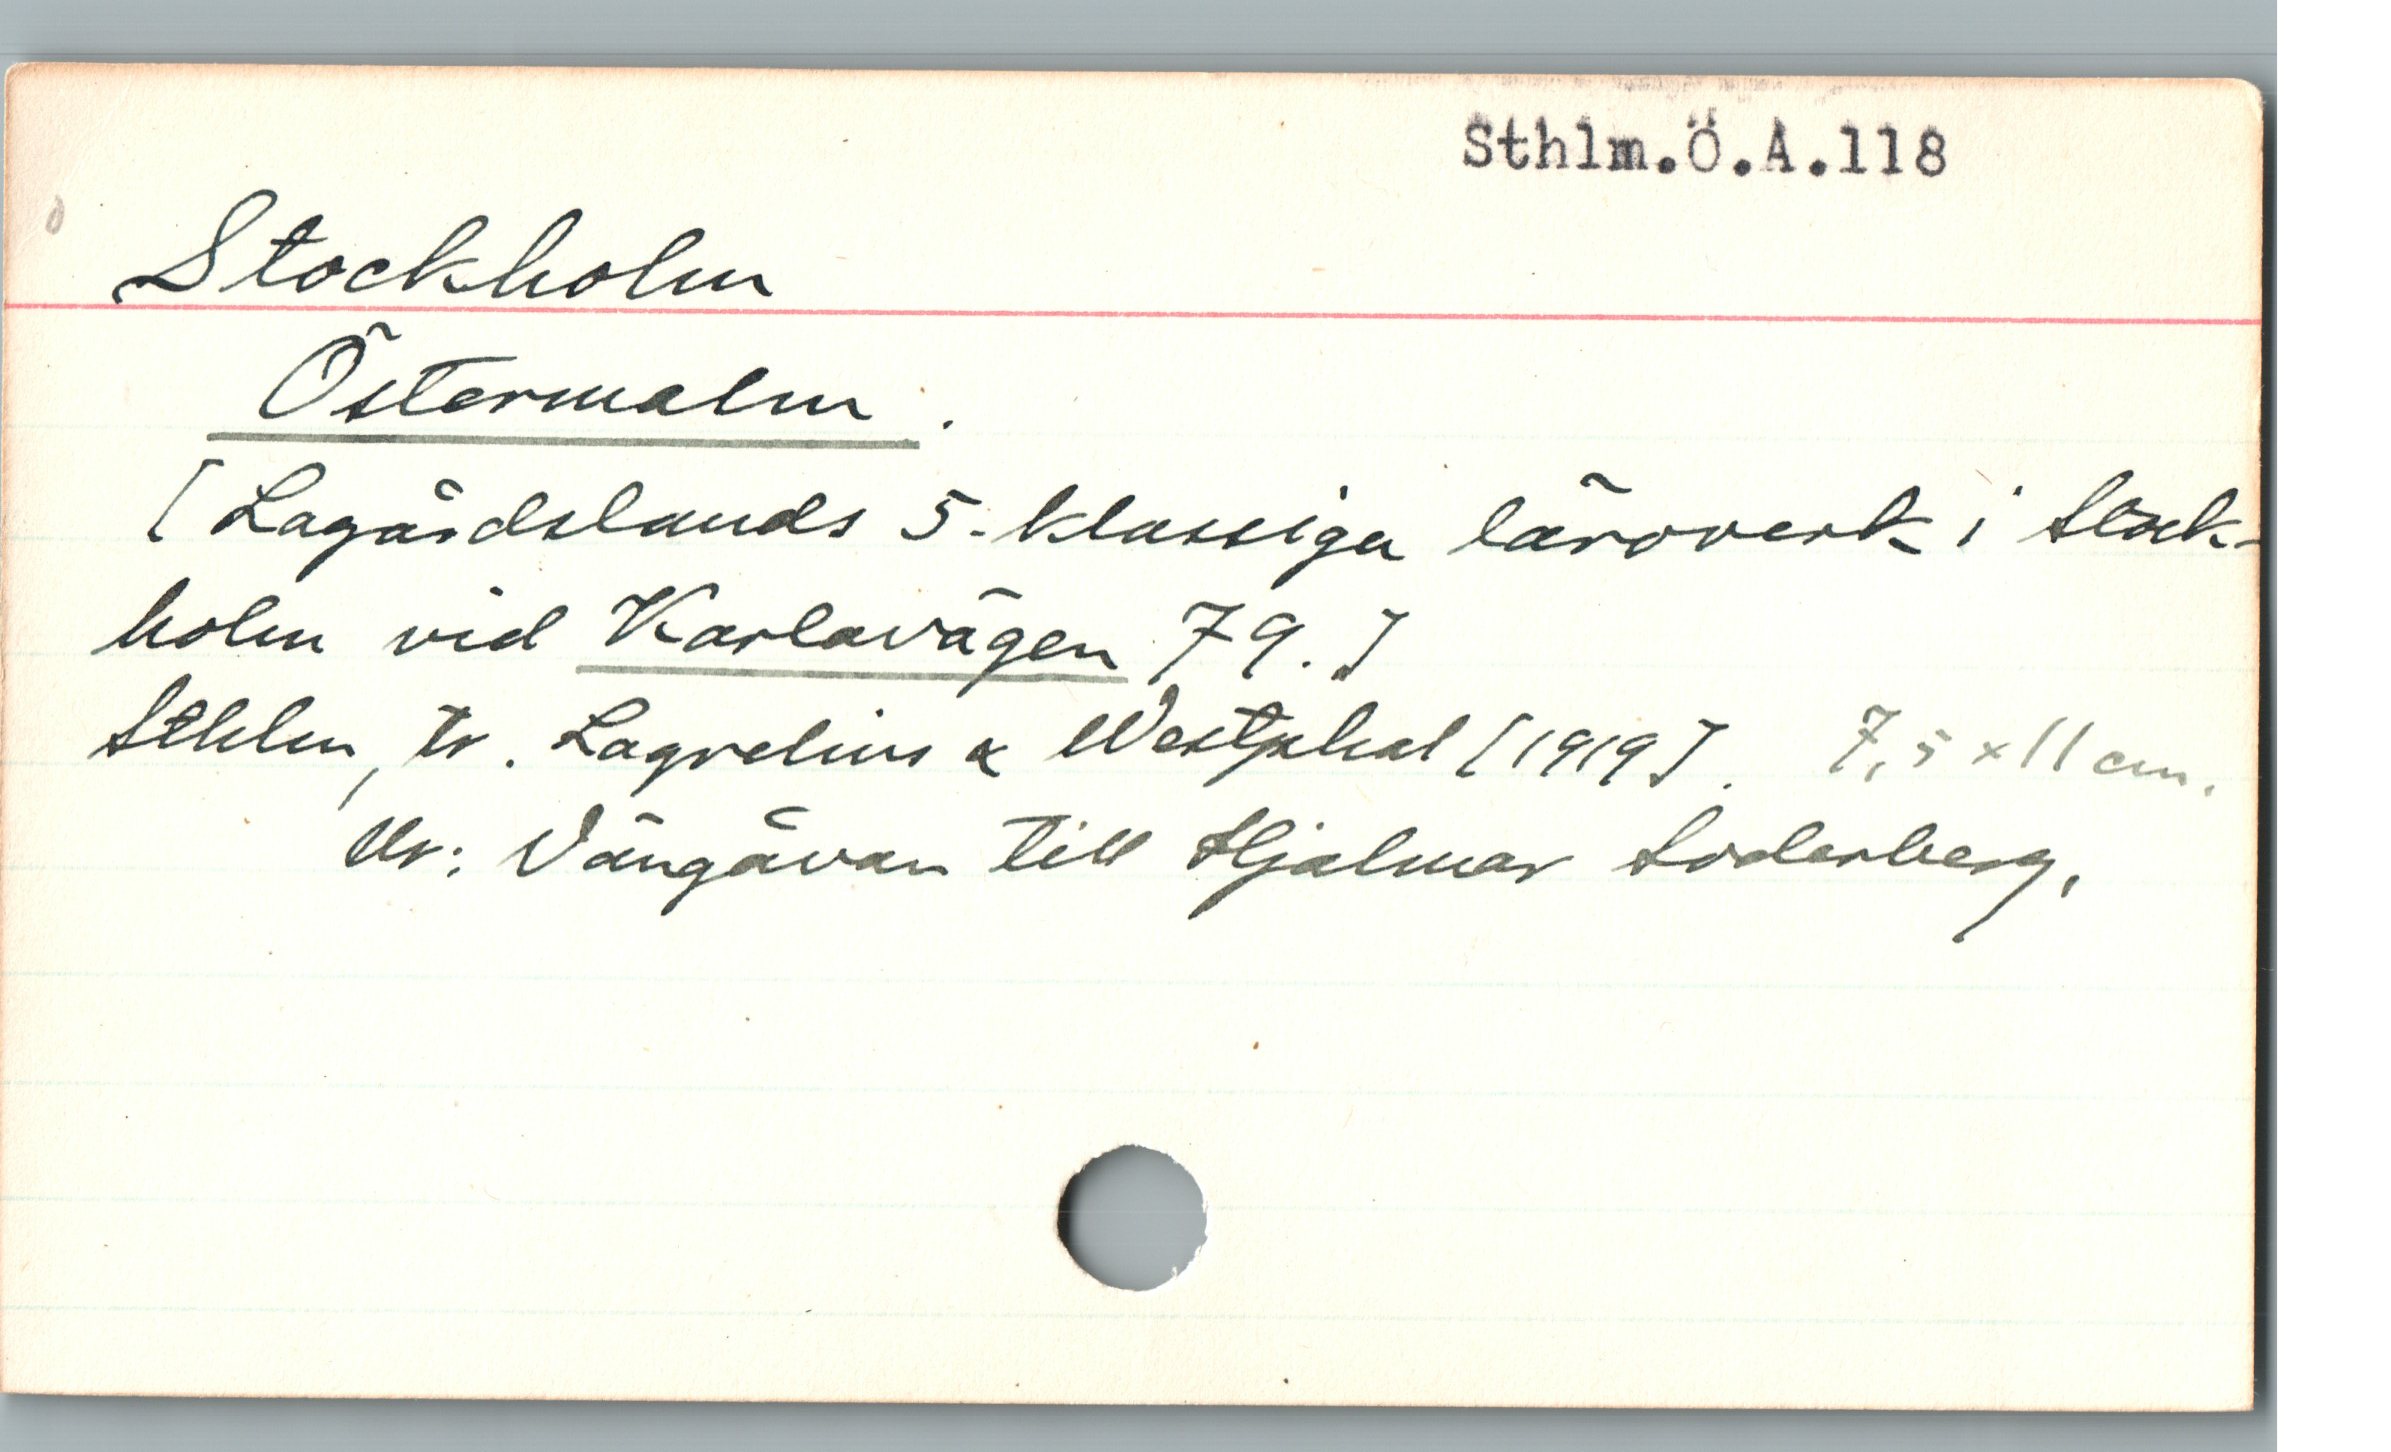 Sthlm.Ö.A.118
Stockholm
Östermalm.
[Lagårdslands 5-klassiga läroverk i Stock-
holm vid Karlavägen 79.]
Sthlm, tr. Lagrelius & Westphal [1919]. 7,5 x 11 cm.
Ur: Vängåvan till Hjalmar Söderberg,